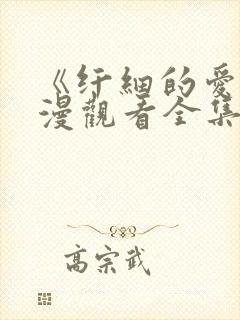 《纡細的愛
漫觀看全集
高宗武